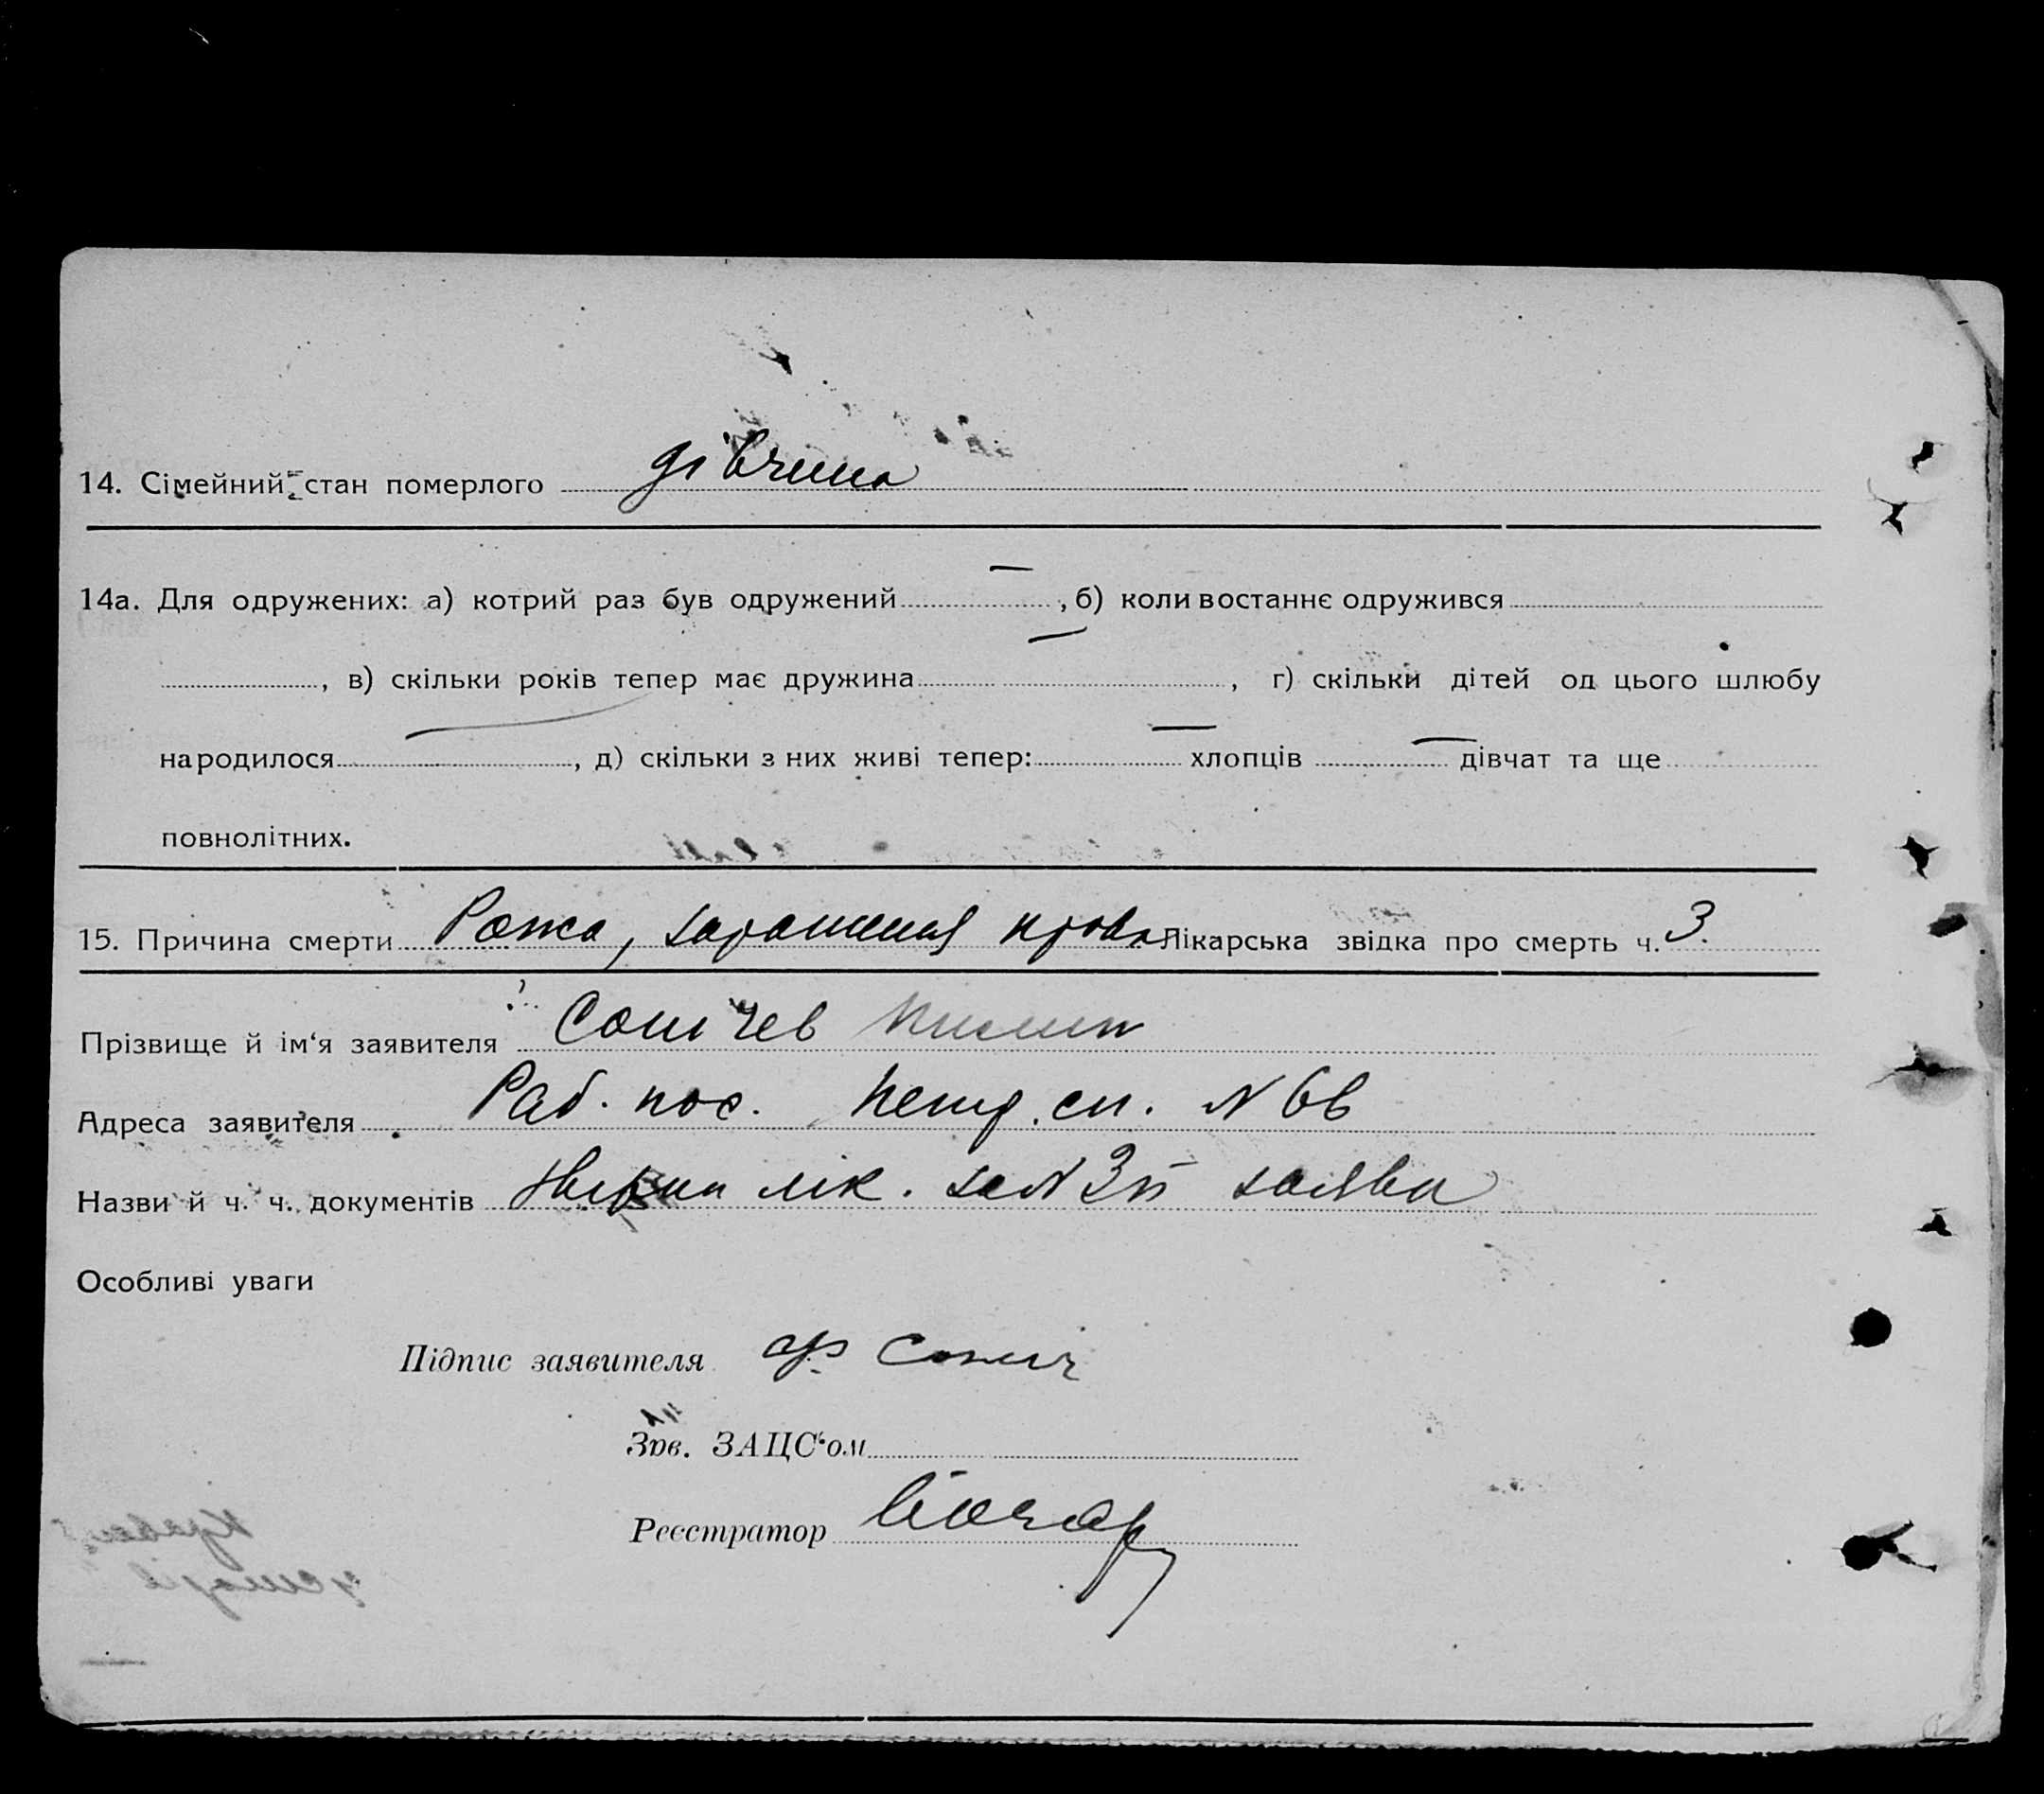 14. Сімейний стан померлого дівчина
14а. Для одружених: а) котрий раз був одружений — , б) коли востаннє одружився
, в) скільки років тепер має дружина — , г) скільки дітей од цього шлюбу
народилося — , д) скільки з них живі тепер: — хлопців — дівчат та ще
повнолітних.
15. Причина смерти Рожа, заражения крови Лікарська звідка про смерть ч. 3.
Прізвище й ім‘я заявителя
Адреса заявителя Раб. пос. N 6в
Назви й ч. ч. документів лік. за N 3 заява
Особливі уваги
Підпис заявителя
Зав. ЗАЦС‘ом
Реєстратор